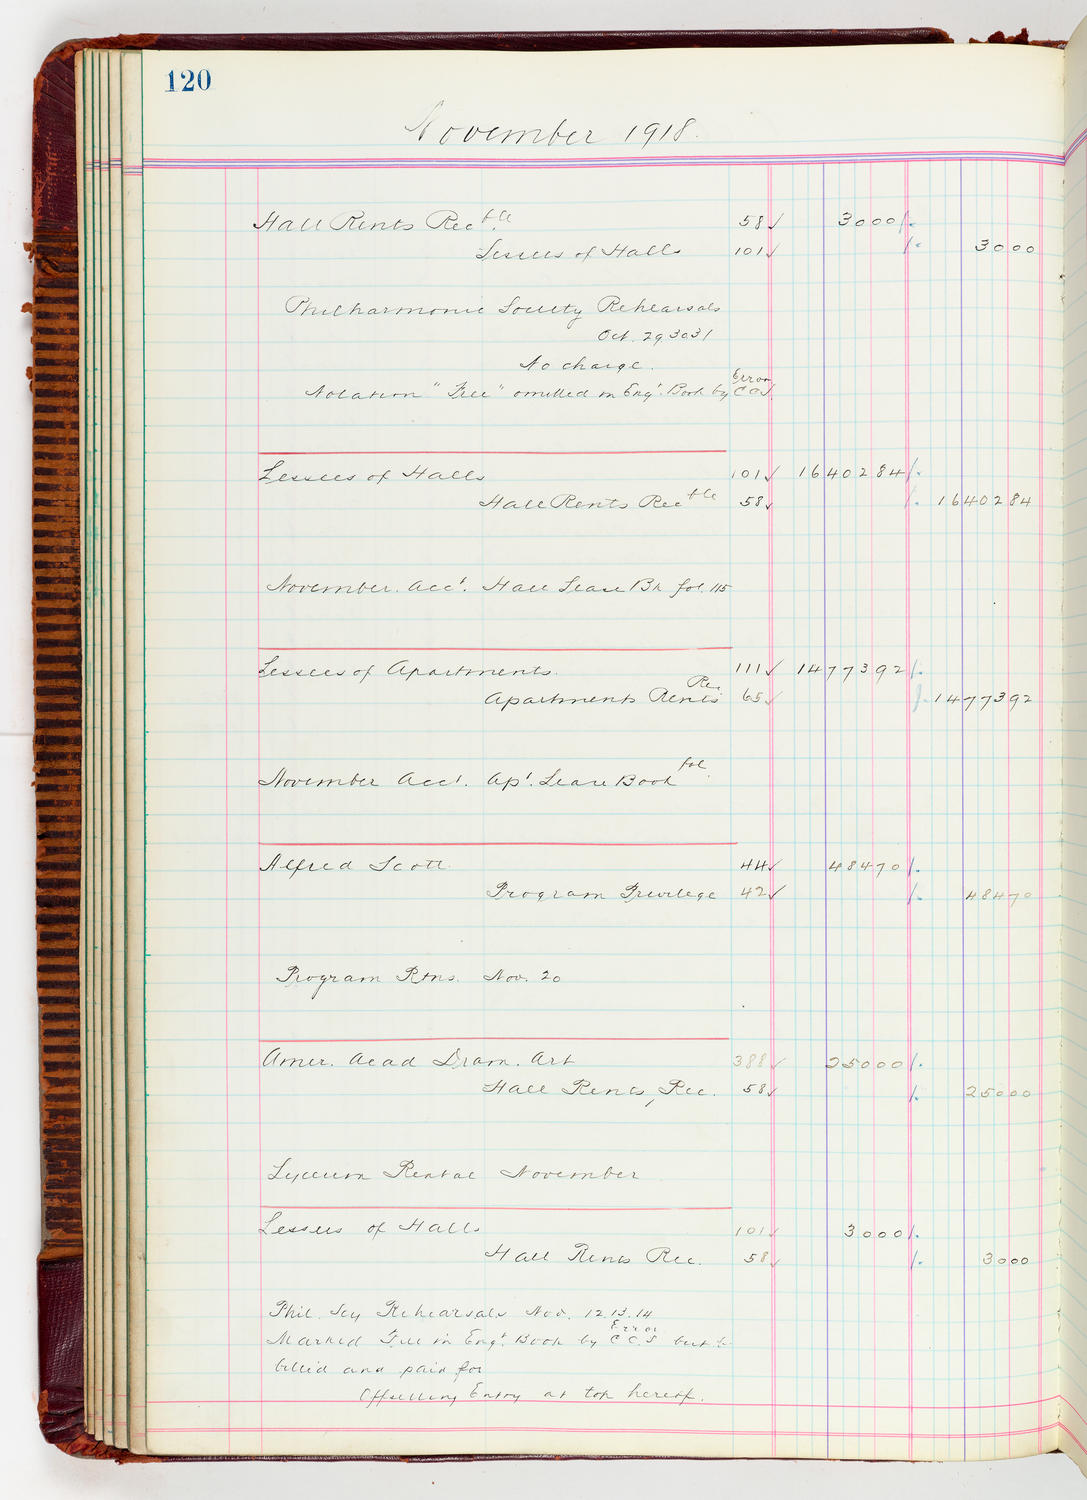 120
November 1918.
Hall Rents Rec'ble. 58 ✓ 3000 /.
Lessees of Halls 101 ✓ /. 3000
Philharmonic Society Rehearsals
Oct. 29 30 31
No charge.
Notation "Free" omitted in Eng't. Book by Error C C S.
Lessees of Halls 101 ✓ 1640284 /.
Hall Rents Rec'ble 58 ✓ /. 1640284
November. Acc't. Hall Lease Bk fol. 115
Lessees of Apartments. 111 ✓ 1477392 /.
Apartment Rents Rec. 65 ✓ /. 1477392
November Acc't. Ap't. Lease Book fol.
Alfred Scott. 44 ✓ 48470 /.
Program Privilege 42 ✓ /. 48470
Program Rtns. Nov. 20
Amer. Acad Dram. Art 388 ✓ 25000 /.
Hall Rents, Rec. 58 ✓ /. 25000
Lyceum Rental November
Lessees of Halls 101 ✓ 3000 /.
Hall Rents Rec. 58 ✓ /. 3000
Phil. Scy Rehearsals Nov. 12.13.14
Marked Free in Eng't Book by Error C C S but
billed and paid for
Offsetting Entry at top hereof.